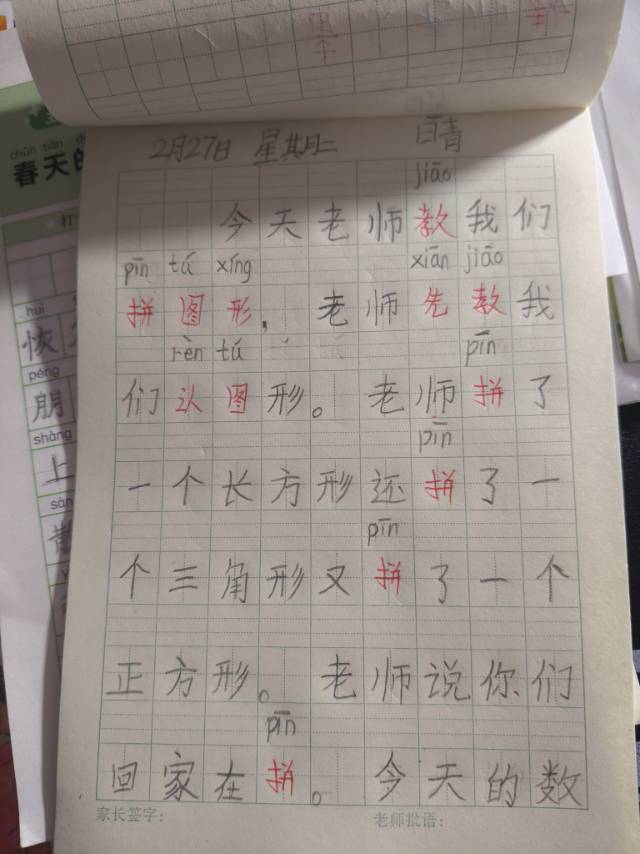 2月27日 星期二 晴
jiāo
今天老师教我们
pīn tú xíng xiān jiāo
拼图形，老师先教我
rèn tú pīn
们认图形。老师拼了
pīn
一个长方形还拼了一
pīn
个三角形又拼了一个
正方形。老师说你们
pīn
回家在拼。今天的数
家长签字： 老师批语：
chūn tiān
春天的
打
huī
恢
péng
朋
shàng
上
sàn